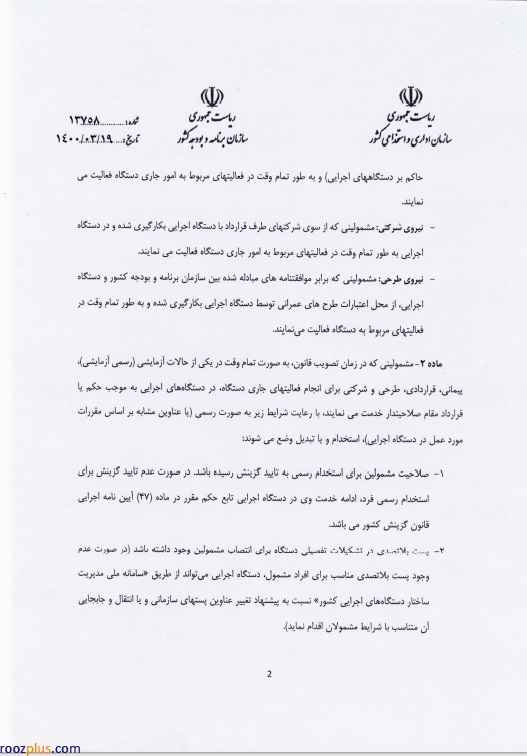 ریاست جمهوری
سازمان اداری و استخدامی کشور
ریاست جمهوری
سازمان برنامه و بودجه کشور
شماره: ۱۳۷۵۸
تاریخ: ۱۴۰۰/۰۳/۱۹
حاکم بر دستگاههای اجرایی) و به طور تمام وقت در فعالیتهای مربوط به امور جاری دستگاه فعالیت می
نمایند.
- نیروی شرکتی: مشمولینی که از سوی شرکتهای طرف قرارداد با دستگاه اجرایی بکارگیری شده و در دستگاه
اجرایی به طور تمام وقت در فعالیتهای مربوط به امور جاری دستگاه فعالیت می نمایند.
- نیروی طرحی: مشمولینی که برابر موافقتنامه های مبادله شده بین سازمان برنامه و بودجه کشور و دستگاه
اجرایی، از محل اعتبارات طرح های عمرانی توسط دستگاه اجرایی بکارگیری شده و به طور تمام وقت در
فعالیتهای مربوط به دستگاه فعالیت می‌نمایند.
ماده ۲- مشمولینی که در زمان تصویب قانون، به صورت تمام وقت در یکی از حالات آزمایشی (رسمی آزمایشی)،
پیمانی، قراردادی، طرحی و شرکتی برای انجام فعالیتهای جاری دستگاه، در دستگاه‌های اجرایی به موجب حکم یا
قرارداد مقام صلاحیتدار خدمت می نمایند، با رعایت شرایط زیر به صورت رسمی (یا عناوین مشابه بر اساس مقررات
مورد عمل در دستگاه اجرایی)، استخدام و یا تبدیل وضع می شوند:
۱- صلاحیت مشمولین برای استخدام رسمی به تایید گزینش رسیده باشد. در صورت عدم تایید گزینش برای
استخدام رسمی فرد، ادامه خدمت وی در دستگاه اجرایی تابع حکم مقرر در ماده (۴۷) آیین نامه اجرایی
قانون گزینش کشور می باشد.
۲- پست بلاتصدی در تشکیلات تفصیلی دستگاه برای انتصاب مشمولین وجود داشته باشد (در صورت عدم
وجود پست بلاتصدی مناسب برای افراد مشمول، دستگاه اجرایی می‌تواند از طریق «سامانه ملی مدیریت
ساختار دستگاه‌های اجرایی کشور» نسبت به پیشنهاد تغییر عناوین پستهای سازمانی و یا انتقال و جابجایی
آن متناسب با شرایط مشمولان اقدام نماید).
2
roozplus.com